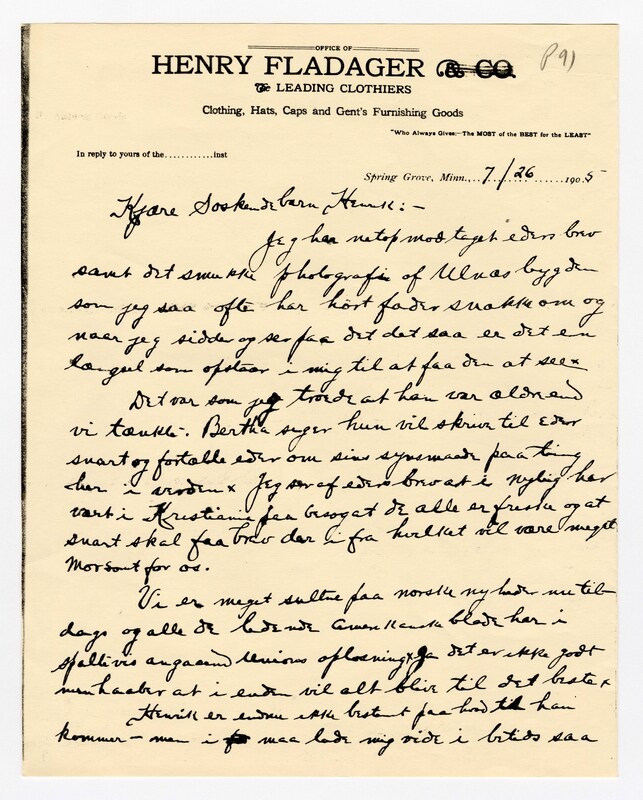 OFFICE OF
P 91
HENRY FLADAGER & CO.
The LEADING CLOTHIERS
Clothing, Hats, Caps and Gent's Furnishing Goods
"Who Always Gives:—The MOST of the BEST for the LEAST"
In reply to yours of the............inst
Spring Grove, Minn., 7/26 1905
Kjære Soskendebarn Henrik: —
Jeg har netop modtaget eders brev
samt det smukke photografi af Ulnæs bygden
som jeg saa ofte har hört fader snakke om og
naar jeg sidder og ser paa det det saa er det en
længsel som opstaar i mig til at faa den at see x
Det var som jeg troede at han var ældre end
vi tænkte. Bertha siger hun vil skrive til eder
snart og fortælle eder om sine synsmaade paa ting
her i verden x Jeg ser af eders brev at i nylig har
vært i Kristiania paa besog at de alle er friske og at
snart skal faa brev der i fra hvilket vil være meget
Morsomt for os.
Vi er meget sultne paa norske nyheder nu til
dags og alle de ledende amerikanske blade har i
spaltevis angaaend Unions oplosning x Ja det er ikke godt
men haaber at i enden vil alt blive til det beste x
Henrik er endnu ikke bestemt paa hvad tid han
kommer — men i maa lade mig vide i betids saa